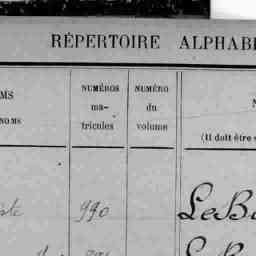 RÉPERTOIRE ALPHAB
MS
NOMS
NUMÉROS
ma-
tricules
NUMÉRO
du
volume
N
(Il doit être
iste 990 Le B